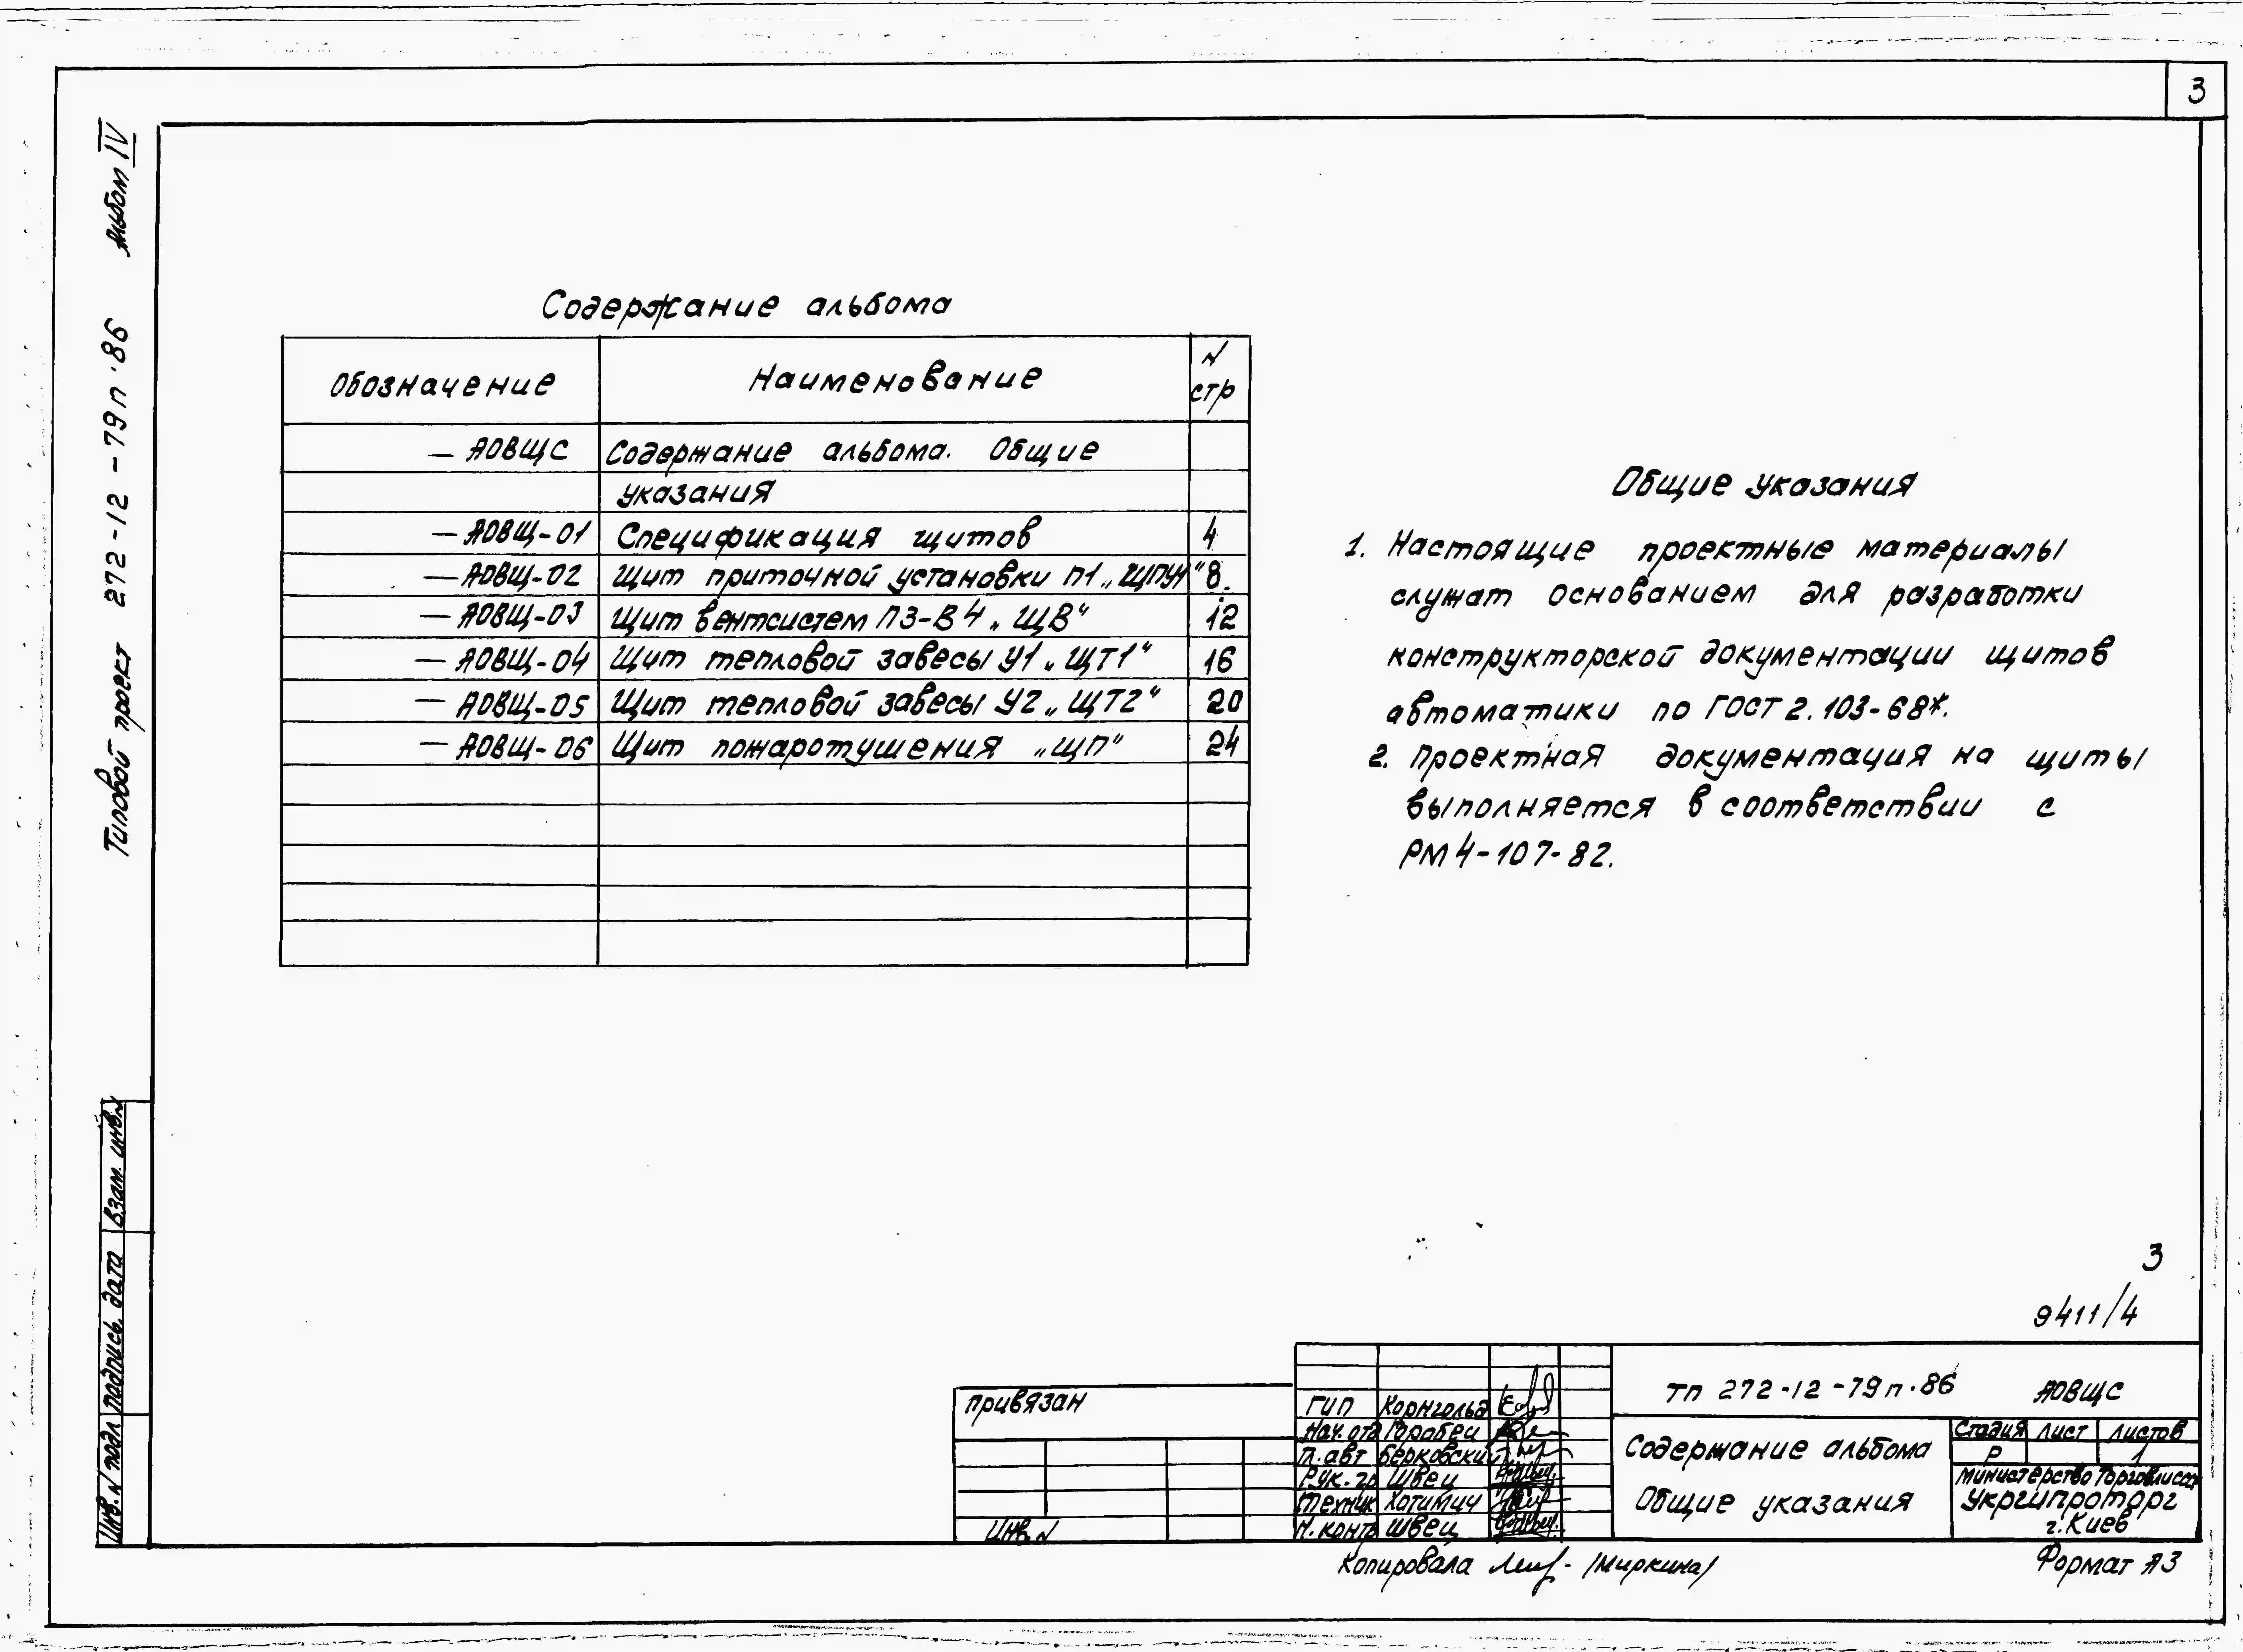 3
Альбом IV
Типовой проект 272-12-79п.86
Содержание альбома
Обозначение Наименование N стр
— АОВЩС Содержание альбома. Общие
указания
— АОВЩ-01 Спецификация щитов 4
— АОВЩ-02 Щит приточной установки П1 „ЩПУ1" 8
— АОВЩ-03 Щит вентсистем П3-В4 „ЩВ" 12
— АОВЩ-04 Щит тепловой завесы У1 „ЩТ1" 16
— АОВЩ-05 Щит тепловой завесы У2 „ЩТ2" 20
— АОВЩ-06 Щит пожаротушения „ЩП" 24
Общие указания
1. Настоящие проектные материалы
служат основанием для разработки
конструкторской документации щитов
автоматики по ГОСТ 2.103-68*.
2. Проектная документация на щиты
выполняется в соответствии с
РМ4-107-82.
Взам. инв. N
Подпись. дата
Инв. N подл
3
9411/4
Привязан
Инв. N
ГИП Корнгольд
Нач. отд Горобец
Гл. авт Берковский
Рук. гр Швец
Техник Хотимич
Н. контр Швец
ТП 272-12-79п.86 АОВЩС
Содержание альбома
Общие указания
Стадия Лист Листов
Р 1
Министерство Торговли СССР
Укргипроторг
г. Киев
Копировала (Миркина)
Формат А3